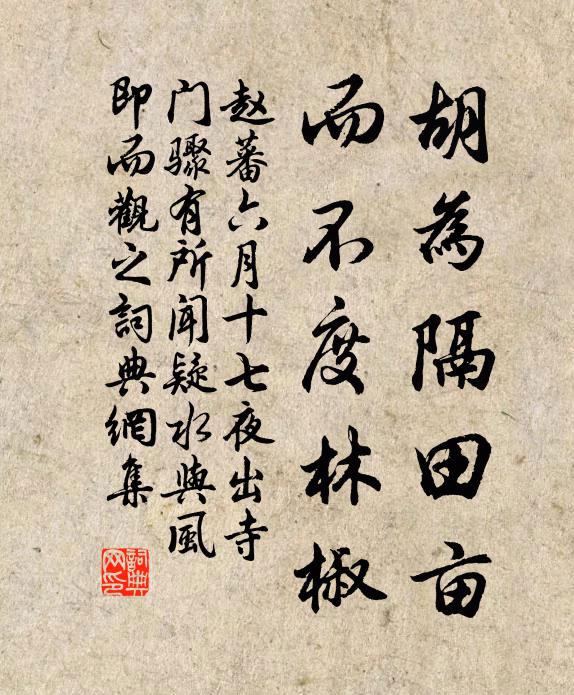 胡為隔田亩
而不度林椒
赵蕃六月十七夜出寺
门骤有所闻疑水與風
即而觀之詞典網集
詞典
网印